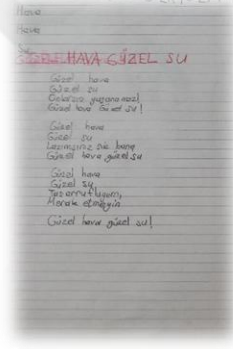 Hava
Hava
GÜZEL HAVA GÜZEL SU
Güzel hava
Güzel su
Onlarsız yaşanamaz!
Güzel hava Güzel su!
Güzel hava
Güzel su
Lazımsınız siz bana
Güzel hava güzel su
Güzel hava
Güzel su
Tasarrufluyum,
Merak etmeyin
Güzel hava güzel su!